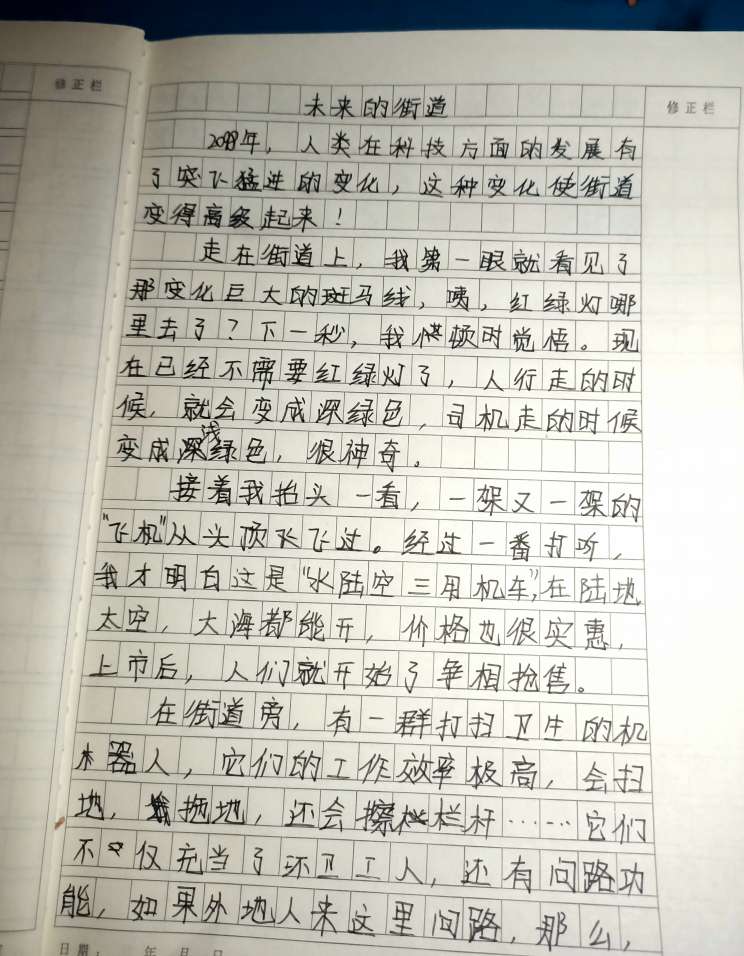 修正栏
修正栏
未来的街道
2099年，人类在科技方面的发展有
了突飞猛进的变化，这种变化使街道
变得高级起来！
走在街道上，我第一眼就看见了
那变化巨大的斑马线，咦，红绿灯哪
里去了？下一秒，我顿时觉悟。现
在已经不需要红绿灯了，人行走的时
候，就会变成深绿色，司机走的时候
变成浅绿色，很神奇。
接着我抬头一看，一架又一架的
“飞机”从头顶飞过。经过一番打听，
我才明白这是“水陆空三用机车”，在陆地
太空，大海都能开，价格也很实惠，
上市后，人们就开始了争相抢售。
在街道旁，有一群打扫卫生的机
器人，它们的工作效率极高，会扫
地，拖地，还会擦栏杆……它们
不仅充当了环卫工人，还有问路功
能，如果外地人来这里问路，那么，
日期： 年 月 日